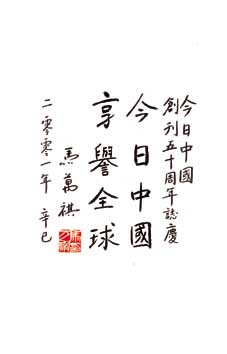 今日中國
創刊五十周年誌慶
今日中國
享譽全球
馬萬祺
二零零一年 辛巳